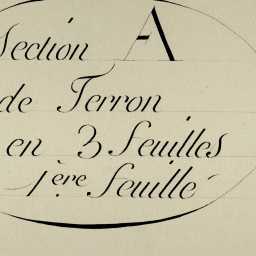 Section A
de Terron
en 3 feuilles
1ère feuille